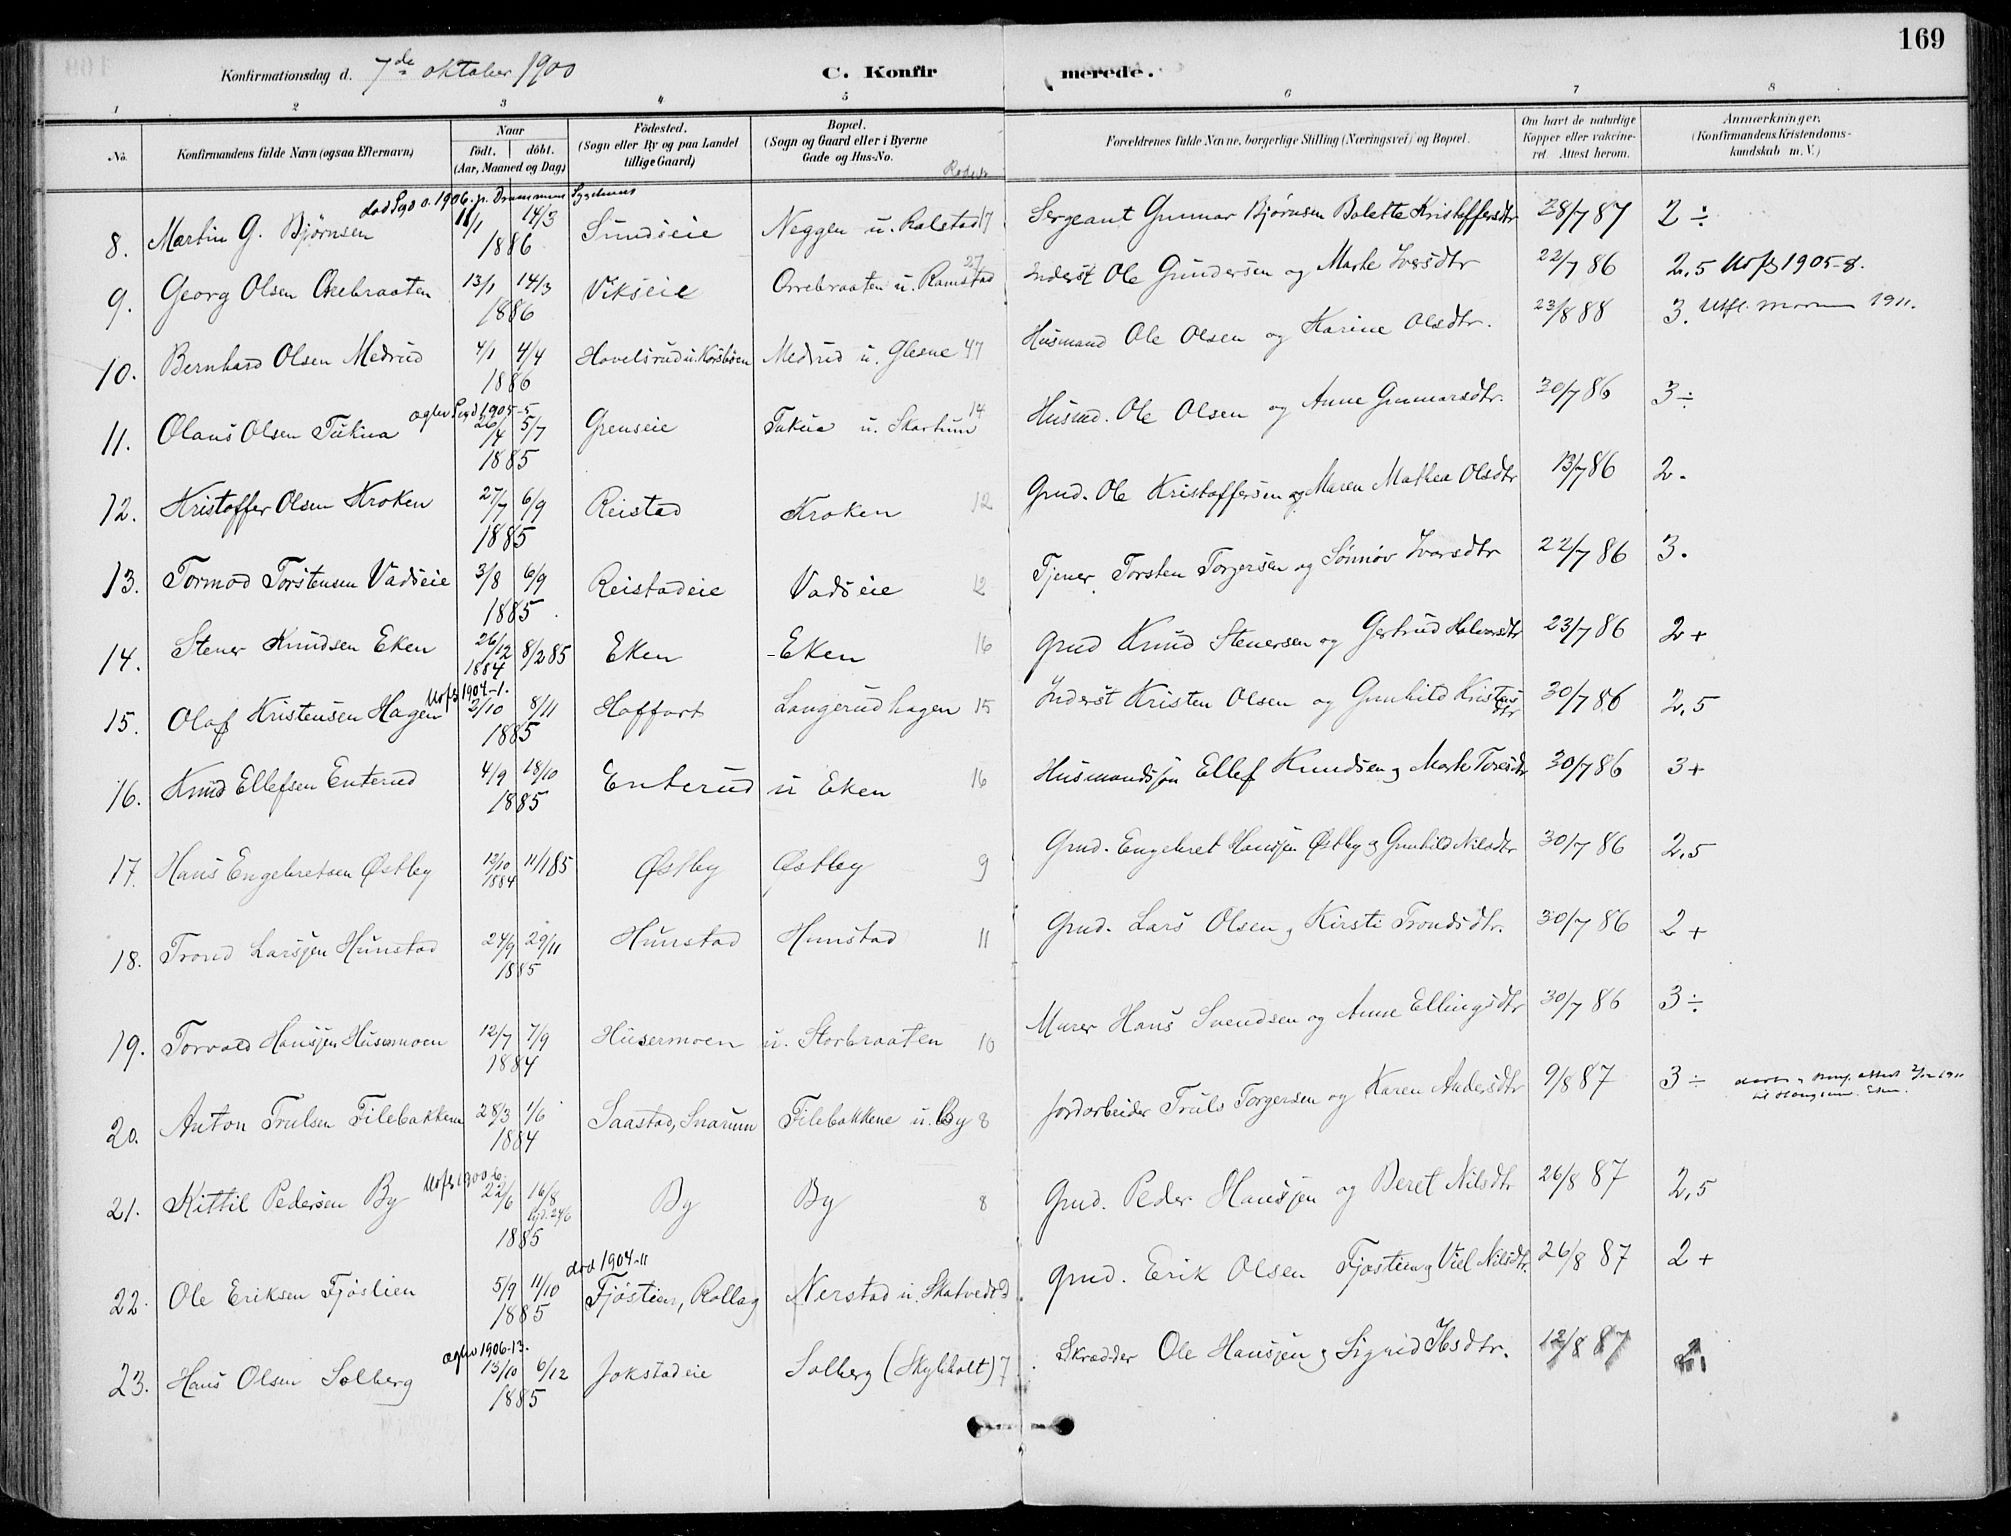 169
Konfirmationsdag d. 7de oktober 1900 C. Konfirmerede.
1 2 3 4 5 6 7 8
No. Konfirmandens fulde Navn (ogsaa Efternavn) Naar födt. döbt. (Aar, Maaned og Dag) Födested. (Sogn eller By og paa Landet tillige Gaard) Bopæl. (Sogn og Gaard eller i Byerne Gade og Hus-No. Rode Forældrenes fulde Navne, borgerlige Stilling (Næringsvei) og Bopæl. Om havt de naturlige Kopper eller vakcineret. Attest herom. Anmærkninger. (Konfirmandens Kristendomskundskab m. V.)
død 1906 p. Drammens Sygehus
8. Martin G. Bjørnsen 11/1 14/3 1886 Sundseie Neggen u. Ralstad 17 Sergeant Gunnar Bjørnsen Bolette Kristoffersdtr 28/7 87 2 ÷
9. Georg Olsen Ekebraaten 13/1 14/3 1886 Vikseie Orrebraaten u. Ramstad 27 Inderst Ole Gundersen og Marte Iversdtr 22/7 86 2,5 Utfl 1905-8.
10. Bernhard Olsen Medrud 4/1 4/4 1886 Hovelsrud u. Korsbøen Medrud u. Glesne 47 Husmand Ole Olsen og Karine Olsdtr. 23/8 88 3. Utfl. 1911.
11. Olaus Olsen Tukua 26/4 5/7 1885 Grenseie Tukua u. Skartum 14 Husmd. Ole Olsen og Anne Gunnarsdtr. 30/7 86 3 ÷
12. Kristoffer Olsen Kroken 27/7 6/9 1885 Reistad Kroken 12 Grud. Ole Kristoffersen og Maren Mathea Olsdtr 13/7 86 2.
13. Tormod Torstensen Vadseie 3/8 6/9 1885 Reistadeie Vadseie 12 Tjener Torsten Torgersen og Sønnøv Ivarsdtr 22/7 86 3.
14. Stener Knudsen Eken 26/12 1884 8/2 85 Eken Eken 16 Grud Knud Stenersen og Gertrud Halvorsdtr 23/7 86 2 +
Utfl 1904-1.
15. Olaf Kristensen Hagen 2/10 8/11 1885 Hoffart Langerudhagen 15 Inderst Kristen Olsen og Gunhild Kristensdtr 30/7 86 2,5
16. Knud Ellefsen Enterud 4/9 18/10 1885 Enterud u Eken 16 Husmandssøn Ellef Knudsen og Marte Toresdtr 30/7 86 3 +
17. Hans Engebretsen Østby 12/10 1884 11/1 85 Østby Østby 9 Grud. Engebret Hanssen Østby og Gunhild Nilsdtr 30/7 86 2,5
18. Trond Larssen Hunstad 24/9 29/11 1885 Hunstad Hunstad 11 Grud. Lars Olsen og Kirsti Trondsdtr. 30/7 86 2 +
19. Torvald Hanssen Husermoen 12/7 7/9 1884 Husermoen u. Storbraaten 10 Murer Hans Svendsen og Anne Ellingsdtr 30/7 86 3 ÷
20. Anton Trulsen Filebakkene 28/3 1/6 1884 Saastad, Snarum Filebakkene u. By 8 Jordarbeider Truls Torgersen og Karen Andersdtr 9/8 87 3 ÷
21. Kittil Pedersen By 22/6 16/8 1885 By By 8 Grud. Peder Hanssen og Beret Nilsdtr 26/8 87 2,5
død 1904-11
22. Ole Eriksen Fjøslien 5/9 11/10 1885 Fjøslien, Rollag Nerstad u. Skatvedt Grud. Erik Olsen Fjøslien og Viel Nilsdtr. 26/8 87 2 +
1906-13.
23. Hans Olsen Solberg 13/10 6/12 1885 Jokstadeie Solberg (Skylholt) 7 Skrædder Ole Hanssen og Sigrid Ibsdtr. 12/8 87 2.